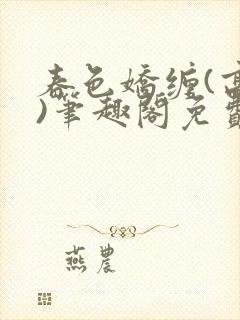 春色嬌纏(
)筆趣閣免費
燕農